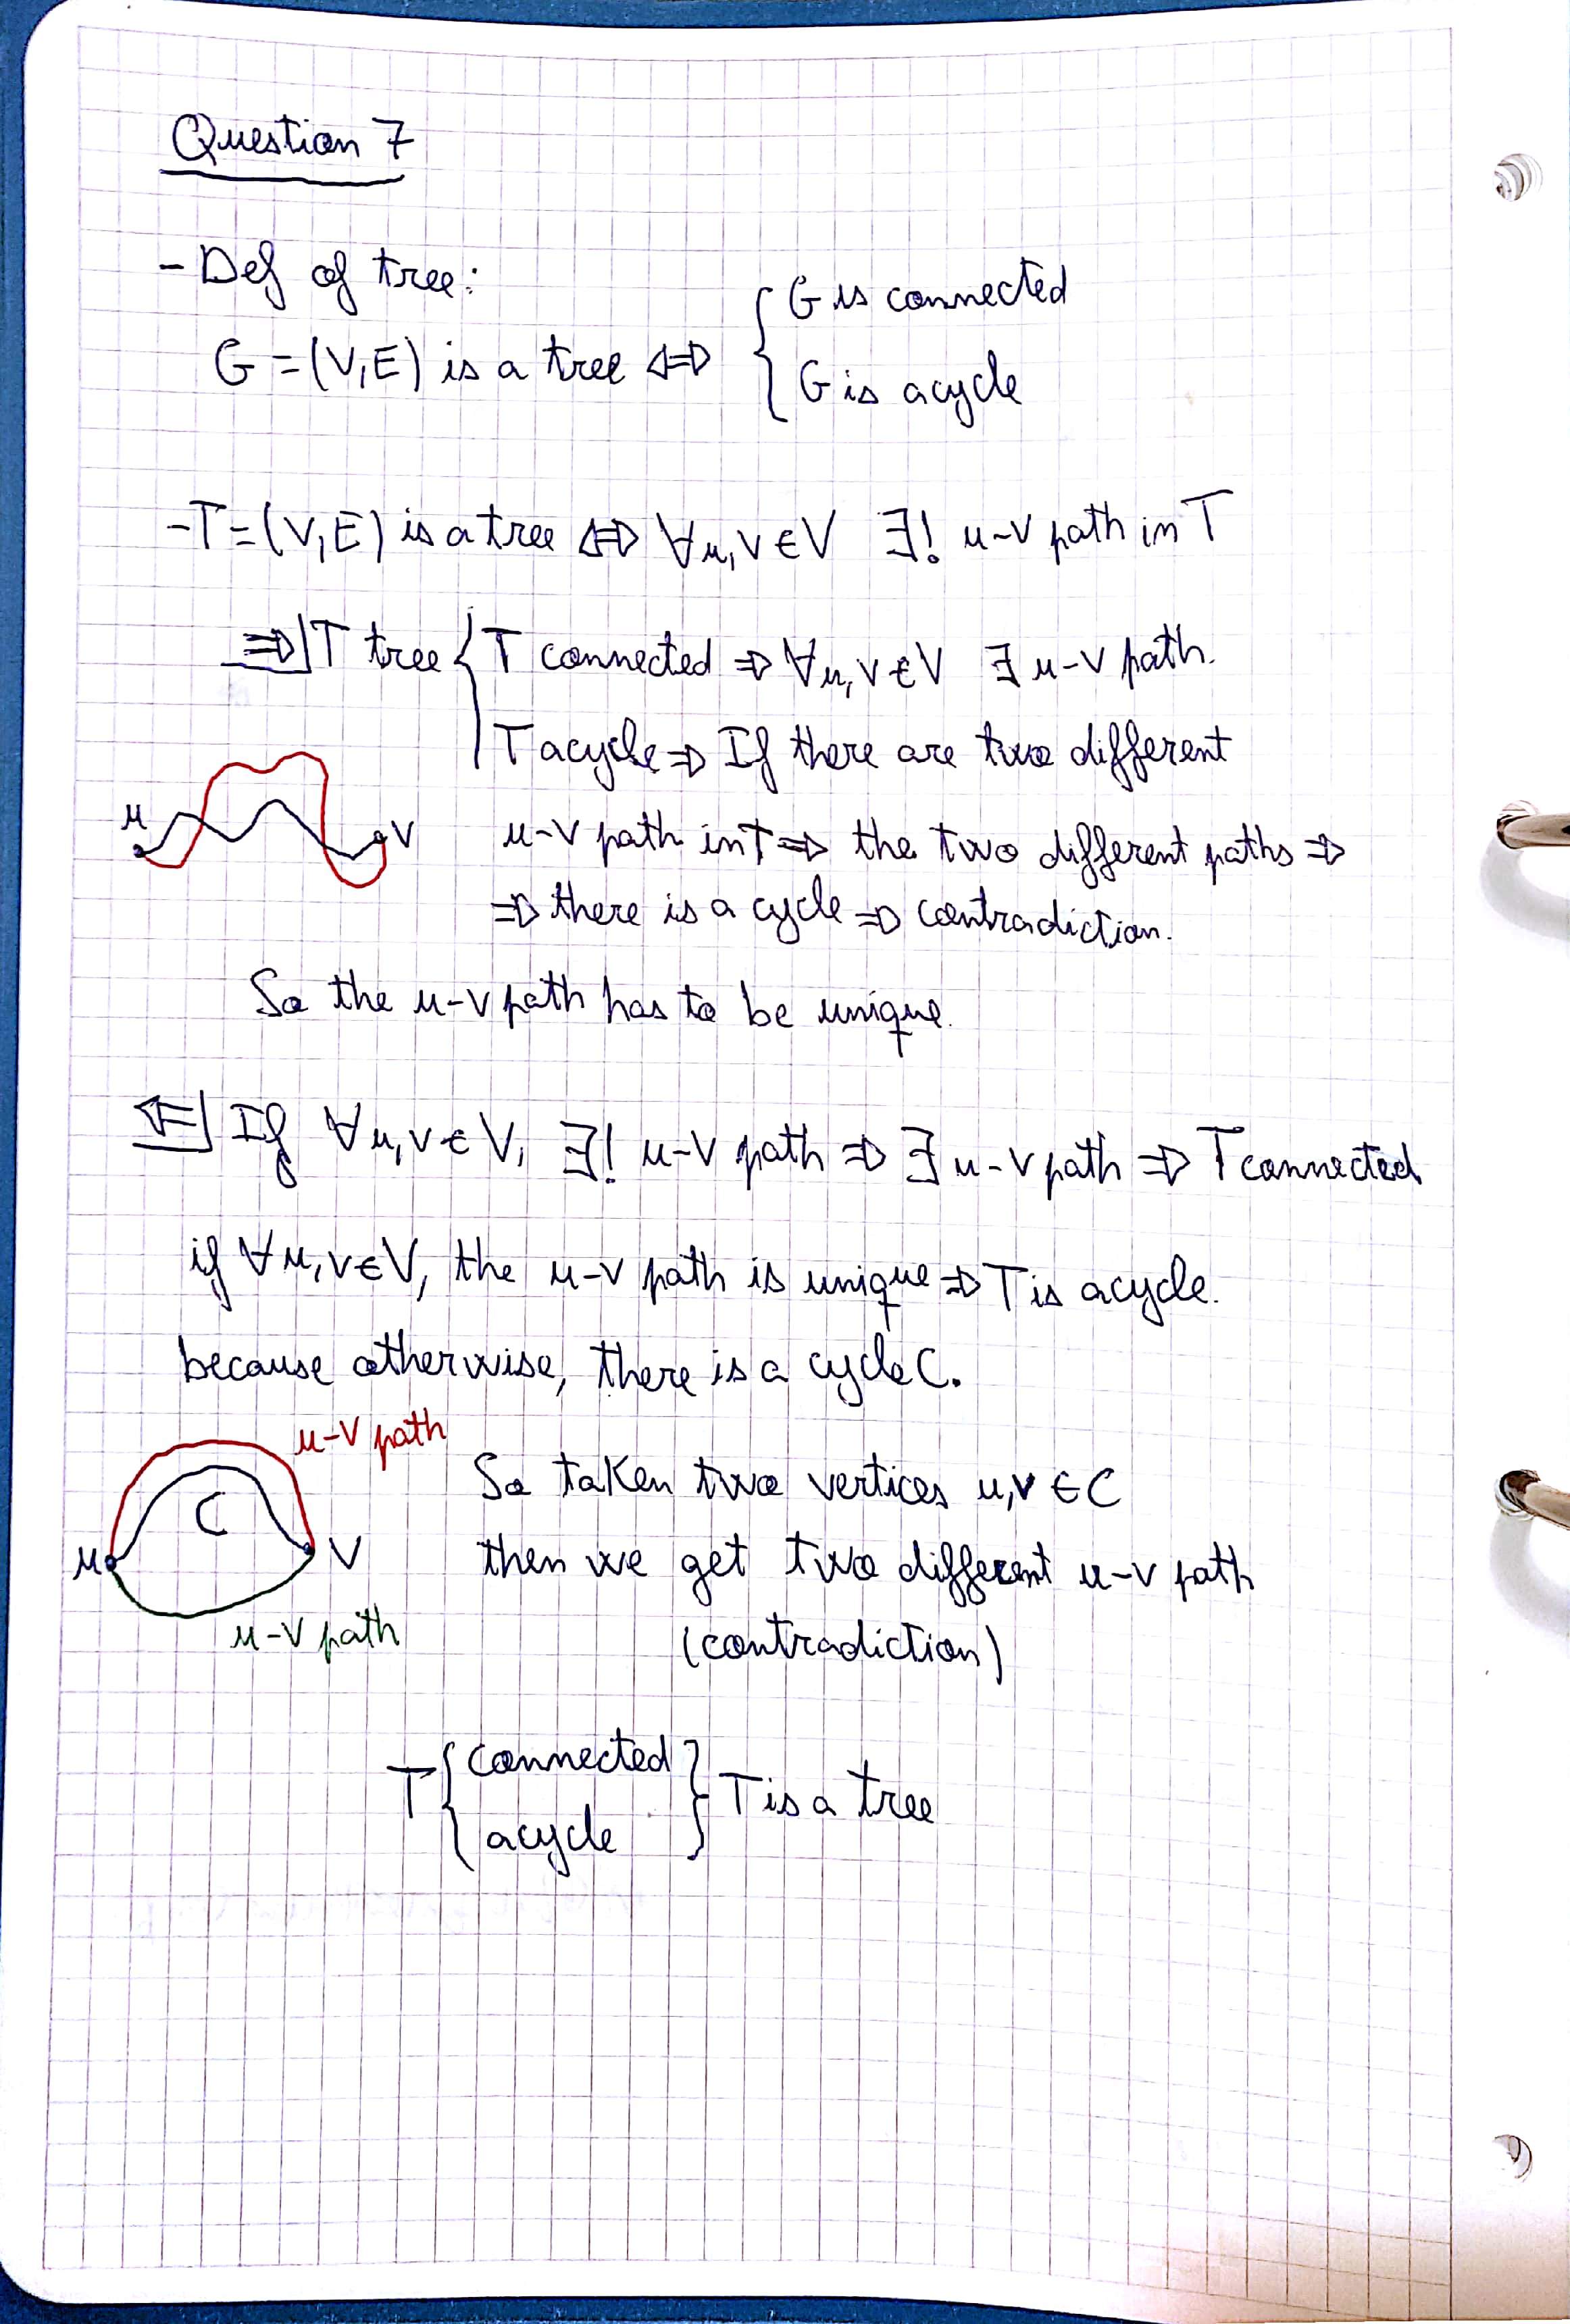 Question 7
- Def of tree:
G = (V,E) is a tree ⇔ { G is connected
G is acycle
- T = (V,E) is a tree ⇔ ∀u,v∈V ∃! u-v path in T
⇒] T tree { T connected ⇒ ∀u,v∈V ∃ u-v path.
T acycle ⇒ If there are two different
u v
u-v path in T ⇒ the two different paths ⇒
⇒ there is a cycle ⇒ contradiction.
So the u-v path has to be unique.
⇐] If ∀u,v∈V, ∃! u-v path ⇒ ∃ u-v path ⇒ T connected
if ∀u,v∈V, the u-v path is unique ⇒ T is acycle.
because otherwise, there is a cycle C.
u-v path
C
u v
u-v path
So taken two vertices u,v ∈ C
then we get two different u-v path
(contradiction)
T { connected
acycle } T is a tree